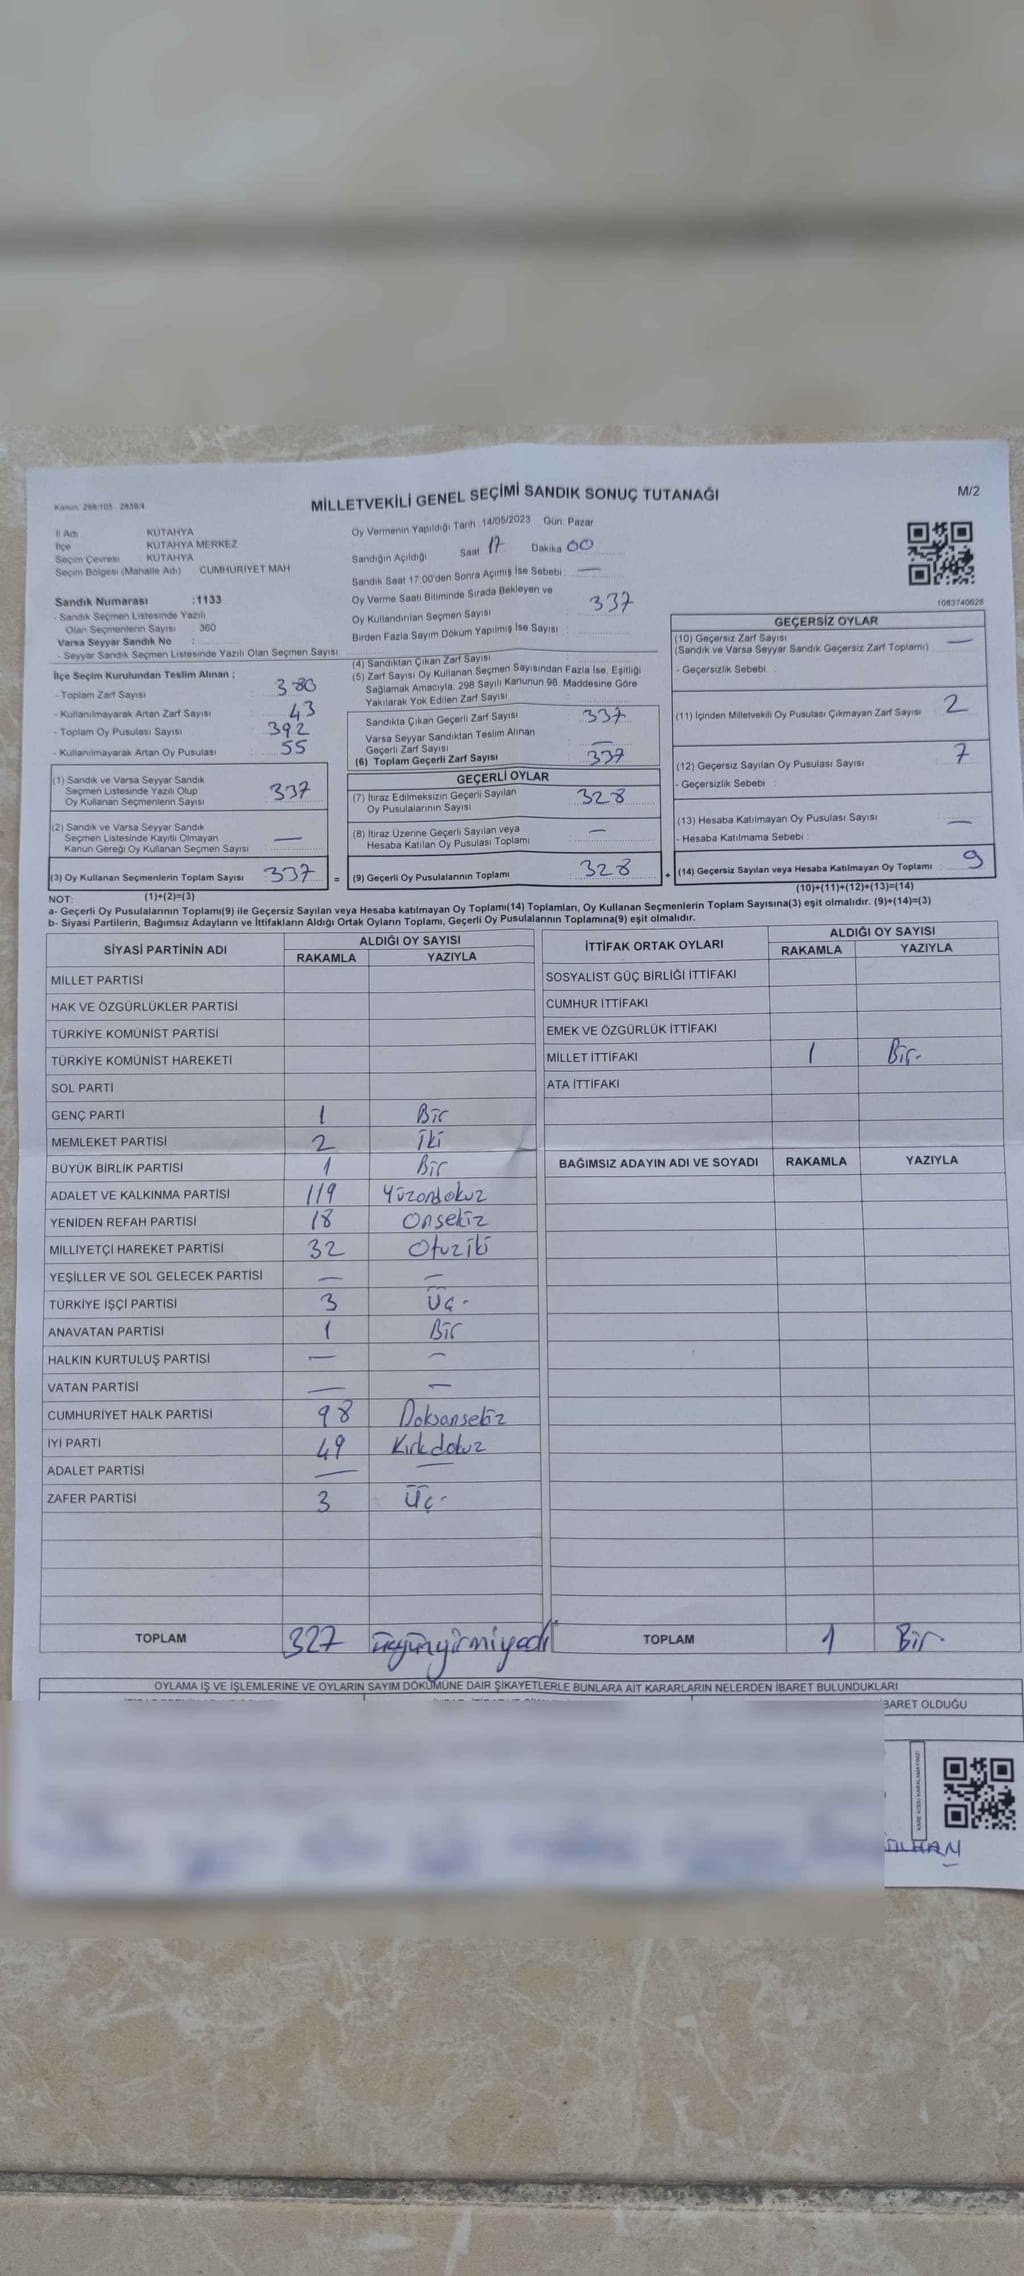 Kanun: 298/103 2839/4
MİLLETVEKİLİ GENEL SEÇİMİ SANDIK SONUÇ TUTANAĞI
M/2
İl Adı KÜTAHYA
İlçe KÜTAHYA MERKEZ
Seçim Çevresi KÜTAHYA
Seçim Bölgesi (Mahalle Adı) CUMHURİYET MAH
Sandık Numarası :1133
- Sandık Seçmen Listesinde Yazılı
Olan Seçmenlerin Sayısı : 360
Varsa Seyyar Sandık No :
- Seyyar Sandık Seçmen Listesinde Yazılı Olan Seçmen Sayısı
Oy Vermenin Yapıldığı Tarih :14/05/2023 Gün: Pazar
Sandığın Açıldığı Saat 17 Dakika 00
Sandık Saat 17:00'den Sonra Açılmış İse Sebebi : —
Oy Verme Saati Bitiminde Sırada Bekleyen ve
Oy Kullandırılan Seçmen Sayısı : 337
Birden Fazla Sayım Döküm Yapılmış İse Sayısı :
1083740628
İlçe Seçim Kurulundan Teslim Alınan ;
- Toplam Zarf Sayısı : 380
- Kullanılmayarak Artan Zarf Sayısı : 43
- Toplam Oy Pusulası Sayısı : 392
- Kullanılmayarak Artan Oy Pusulası : 55
(1) Sandık ve Varsa Seyyar Sandık
Seçmen Listesinde Yazılı Olup
Oy Kullanan Seçmenlerin Sayısı : 337
(2) Sandık ve Varsa Seyyar Sandık
Seçmen Listesinde Kayıtlı Olmayan
Kanun Gereği Oy Kullanan Seçmen Sayısı : —
(3) Oy Kullanan Seçmenlerin Toplam Sayısı : 337 =
(1)+(2)=(3)
(4) Sandıktan Çıkan Zarf Sayısı :
(5) Zarf Sayısı Oy Kullanan Seçmen Sayısından Fazla İse, Eşitliği
Sağlamak Amacıyla, 298 Sayılı Kanunun 98. Maddesine Göre
Yakılarak Yok Edilen Zarf Sayısı :
Sandıkta Çıkan Geçerli Zarf Sayısı : 337
Varsa Seyyar Sandıktan Teslim Alınan
Geçerli Zarf Sayısı : —
(6) Toplam Geçerli Zarf Sayısı : 337
GEÇERLİ OYLAR
(7) İtiraz Edilmeksizin Geçerli Sayılan
Oy Pusulalarının Sayısı : 328
(8) İtiraz Üzerine Geçerli Sayılan veya
Hesaba Katılan Oy Pusulası Toplamı : —
(9) Geçerli Oy Pusulalarının Toplamı : 328 +
GEÇERSİZ OYLAR
(10) Geçersiz Zarf Sayısı : —
(Sandık ve Varsa Seyyar Sandık Geçersiz Zarf Toplamı)
- Geçersizlik Sebebi :
(11) İçinden Milletvekili Oy Pusulası Çıkmayan Zarf Sayısı : 2
(12) Geçersiz Sayılan Oy Pusulası Sayısı : 7
- Geçersizlik Sebebi :
(13) Hesaba Katılmayan Oy Pusulası Sayısı : —
- Hesaba Katılmama Sebebi :
(14) Geçersiz Sayılan veya Hesaba Katılmayan Oy Toplamı : 9
(10)+(11)+(12)+(13)=(14)
NOT:
a- Geçerli Oy Pusulalarının Toplamı(9) ile Geçersiz Sayılan veya Hesaba katılmayan Oy Toplamı(14) Toplamları, Oy Kullanan Seçmenlerin Toplam Sayısına(3) eşit olmalıdır. (9)+(14)=(3)
b- Siyasi Partilerin, Bağımsız Adayların ve İttifakların Aldığı Ortak Oyların Toplamı, Geçerli Oy Pusulalarının Toplamına(9) eşit olmalıdır.
SİYASİ PARTİNİN ADI ALDIĞI OY SAYISI
RAKAMLA YAZIYLA
MİLLET PARTİSİ
HAK VE ÖZGÜRLÜKLER PARTİSİ
TÜRKİYE KOMÜNİST PARTİSİ
TÜRKİYE KOMÜNİST HAREKETİ
SOL PARTİ
GENÇ PARTİ 1 Bir
MEMLEKET PARTİSİ 2 İki
BÜYÜK BİRLİK PARTİSİ 1 Bir
ADALET VE KALKINMA PARTİSİ 119 Yüzondokuz
YENİDEN REFAH PARTİSİ 18 Onsekiz
MİLLİYETÇİ HAREKET PARTİSİ 32 Otuziki
YEŞİLLER VE SOL GELECEK PARTİSİ — —
TÜRKİYE İŞÇİ PARTİSİ 3 Üç -
ANAVATAN PARTİSİ 1 Bir
HALKIN KURTULUŞ PARTİSİ — —
VATAN PARTİSİ — —
CUMHURİYET HALK PARTİSİ 98 Doksansekiz
İYİ PARTİ 49 Kırkdokuz
ADALET PARTİSİ — —
ZAFER PARTİSİ 3 Üç -
TOPLAM 327 üçyüzyirmiyedi
İTTİFAK ORTAK OYLARI ALDIĞI OY SAYISI
RAKAMLA YAZIYLA
SOSYALİST GÜÇ BİRLİĞİ İTTİFAKI
CUMHUR İTTİFAKI
EMEK VE ÖZGÜRLÜK İTTİFAKI
MİLLET İTTİFAKI 1 Bir-
ATA İTTİFAKI
BAĞIMSIZ ADAYIN ADI VE SOYADI RAKAMLA YAZIYLA
TOPLAM 1 Bir
OYLAMA İŞ VE İŞLEMLERİNE VE OYLARIN SAYIM DÖKÜMÜNE DAİR ŞİKAYETLERLE BUNLARA AİT KARARLARIN NELERDEN İBARET BULUNDUKLARI
İBARET OLDUĞU